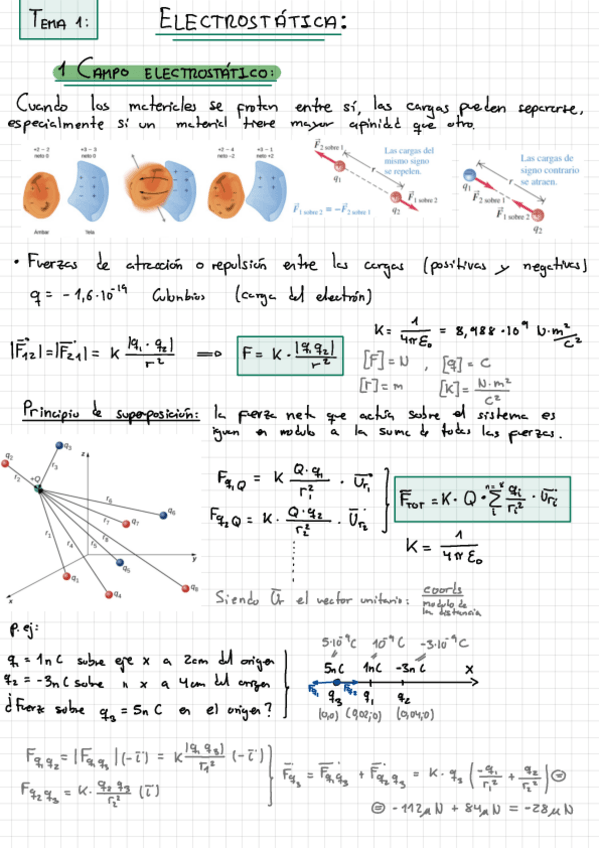 TEMA 1:
ELECTROSTÁTICA:
1 CAMPO ELECTROSTÁTICO:
Cuando los materiales se frotan entre sí, las cargas pueden separarse,
especialmente si un material tiene mayor afinidad que otro.
+2 − 2
neto 0
+3 − 3
neto 0
+2 − 4
neto −2
+3 − 1
neto +2
Ámbar
Tela
F⃗2 sobre 1
q1
r
Las cargas del
mismo signo
se repelen.
F⃗1 sobre 2
q2
F⃗1 sobre 2 = −F⃗2 sobre 1
q1
r
Las cargas de
signo contrario
se atraen.
F⃗2 sobre 1
F⃗1 sobre 2
q2
• Fuerzas de atracción o repulsión entre las cargas (positivas y negativas)
q = −1,6·10⁻¹⁹ Culombios (carga del electrón)
|F⃗12| = |F⃗21| = K |q1 · q2| / r² ⇒ F = K · |q1 q2| / r²
K = 1 / 4πε0 = 8,988 · 10⁹ N·m² / C²
[F] = N , [q] = C
[r] = m [K] = N·m² / C²
Principio de superposición: la fuerza neta que actúa sobre el sistema es
igual en modulo a la suma de todas las fuerzas.
z
y
x
+Q
q1
q2
q3
q4
q5
q6
q7
q8
r1
r2
r3
r4
r5
r6
r7
r8
Fq1Q = K Q·q1 / r1² · Ur1
Fq2Q = K · Q·q2 / r2² · Ur2
F̄TOT = K · Q · Σ qi / ri² · Ūri
K = 1 / 4πε0
Siendo Ūr el vector unitario: coords / modulo de la distancia
p.ej:
q1 = 1nC sobre eje x a 2cm del origen
q2 = −3nC sobre " x a 4cm del origen
¿Fuerza sobre q3 = 5nC en el origen?
5·10⁻⁹C 10⁻⁹C −3·10⁻⁹C
5nC 1nC −3nC x
q3 q1 q2
(0,0) (0,02;0) (0,04;0)
Fq1q2 = |Fq1q3| (−i⃗) = K |q1 q3| / r1² (−i⃗)
Fq2q3 = K · q2 q3 / r2² (i⃗)
F⃗q3 = F⃗q1q3 + F⃗q2q3 = K · q3 (−q1 / r1² + q2 / r2²) =
= −112μN + 84μN = −28μN